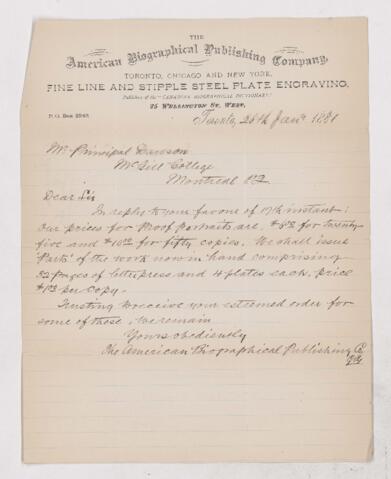 THE
American Biographical Publishing Company,
TORONTO, CHICAGO AND NEW YORK.
FINE LINE AND STIPPLE STEEL PLATE ENGRAVING.
Publishers of the "CANADIAN BIOGRAPHICAL DICTIONARY."
25 WELLINGTON ST. WEST.
P. O. Box
Toronto, 28th Jany 1881
Mr Principal Dawson
McGill College
Montreal P.Q.
Dear Sir
In reply to your favor of 17th instant;
Our prices for Proof Portraits are, for Twenty-
five and for fifty copies. We shall issue
"Parts" of the work now in hand comprising
32 pages of letterpress and 4 plates each, price
per copy.
Trusting to receive your esteemed order for
some of these, we remain
Yours obediently
The American Biographical Publishing Co